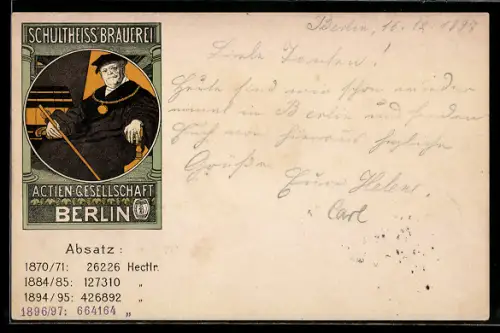 SCHULTHEISS'BRAUEREI
ACTIEN-GESELLSCHAFT
BERLIN
Absatz:
1870/71: 26226 Hectltr.
1884/85: 127310 "
1894/95: 426892 "
1896/97: 664164 "
Berlin, 16.12.1897
Liebe Tanten!
Heute sind wir schon wieder
einmal in Berlin und senden
Euch von hieraus herzliche
Grüße.
Eure Helene.
Carl